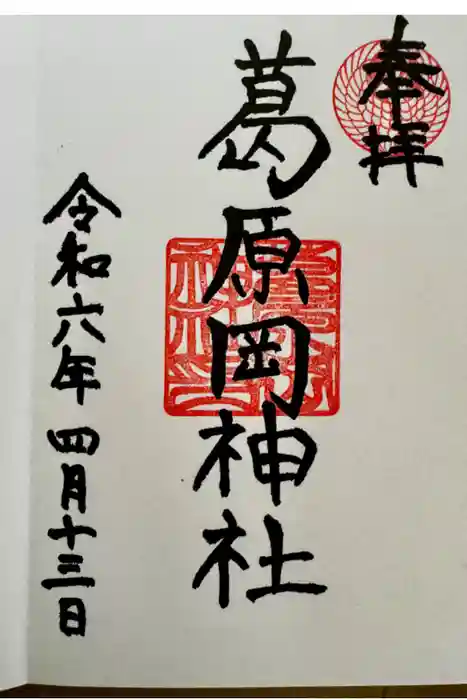 奉拝
葛原岡神社
令和六年四月十三日